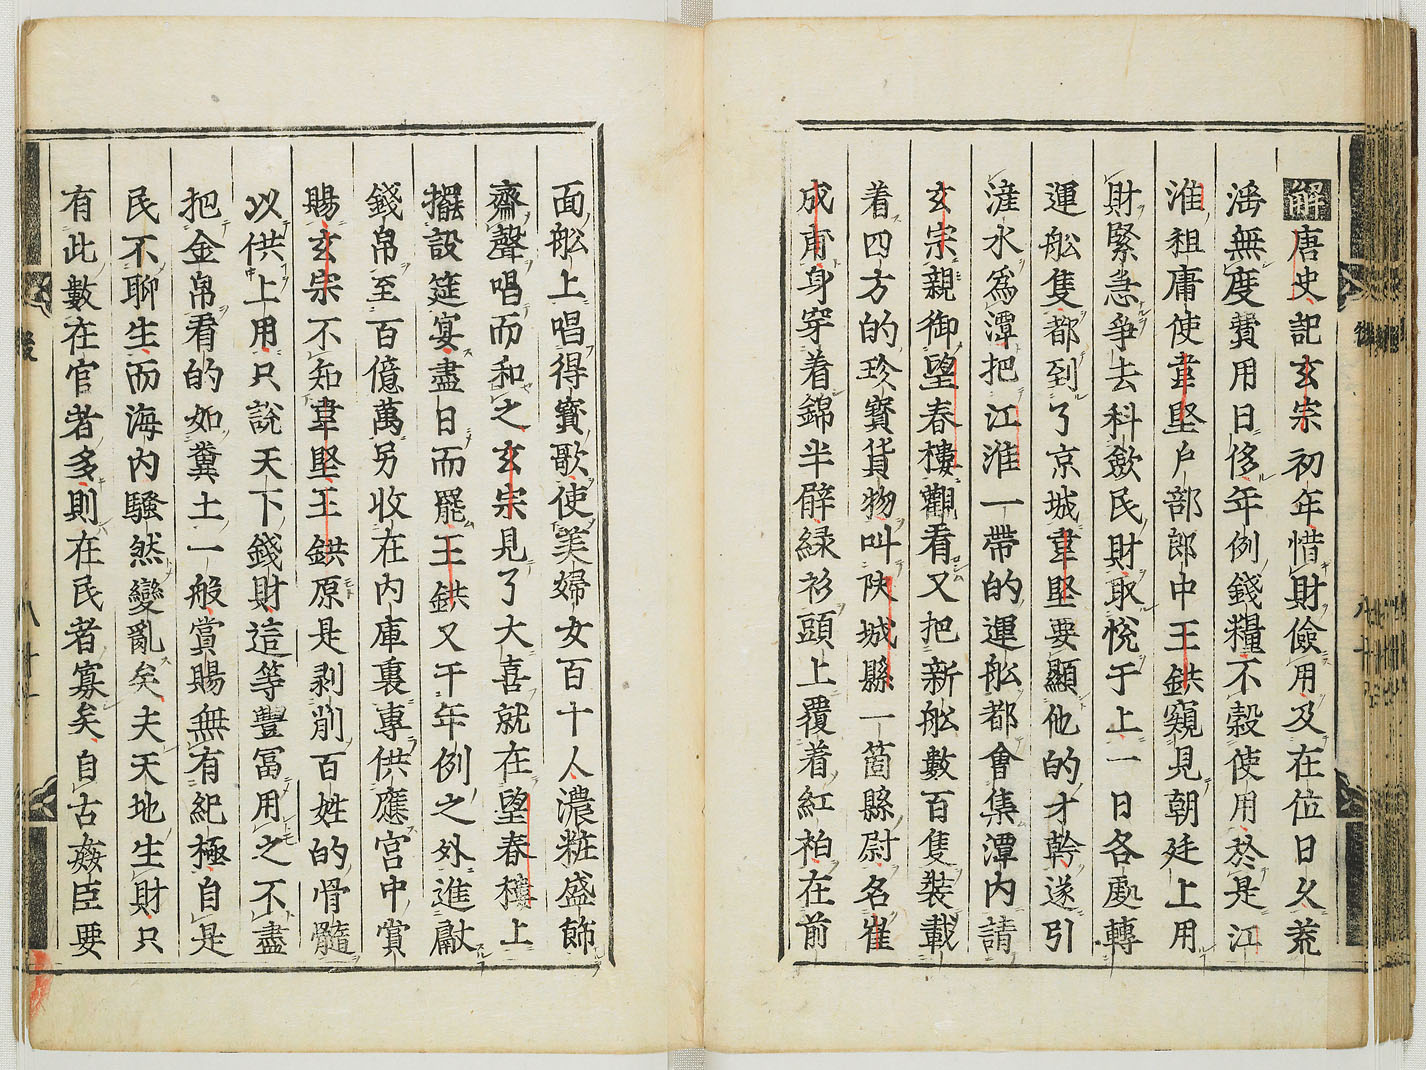 解唐史記玄宗初年惜財儉用及在位日久荒
滛無度費用日侈年例錢糧不彀使用於是江
淮租庸使韋堅戶部郎中王鉷窺見朝廷上用
財緊急爭去科斂民財取悅于上一日各處轉
運舩隻都到了京城韋堅要顯他的才幹遂引
滻水爲潭把江淮一帶的運舩都會集潭內請
玄宗親御望春樓觀看又把新舩數百隻裝載
着四方的珍寶貨物叫陜城縣一箇縣尉名崔
成甫身穿着錦半臂綠衫頭上覆着紅袙在前
面舩上唱得寶歌使美婦女百十人濃粧盛飾
齊聲唱而和之玄宗見了大喜就在望春樓上
擺設筵宴盡日而罷王鉷又于年例之外進獻
錢帛至百億萬另收在內庫裏專供應宮中賞
賜玄宗不知韋堅王鉷原是剥削百姓的骨髓
以供上用只說天下錢財這等豐冨用之不盡
把金帛看的如糞土一般賞賜無有紀極自是
民不聊生而海內騷然變亂矣夫天地生財只
有此數在官者多則在民者寡矣自古姦臣要